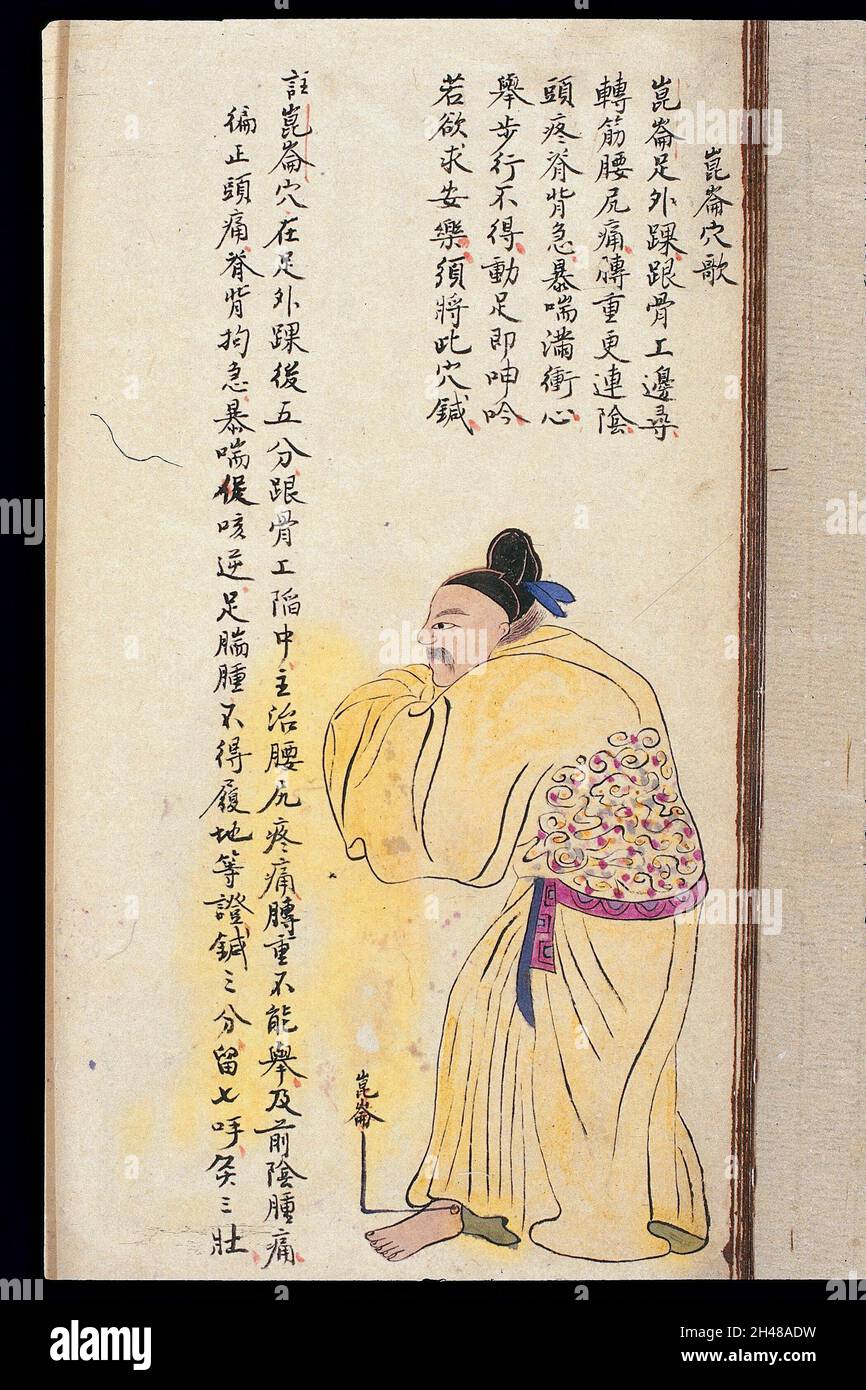 崑崙穴歌
崑崙足外踝跟骨上邊尋
轉筋腰尻痛膊重更連陰
頭疼脊背急暴喘滿衝心
舉步行不得動足即呻吟
若欲求安樂須將此穴鍼
註崑崙穴在足外踝後五分跟骨上陷中主治腰尻疼痛膊重不能舉及前陰腫痛
徧正頭痛脊背拘急暴喘促咳逆足腨腫不得履地等證鍼三分留七呼灸三壯
崑崙
alamy
Image ID: 2H48ADW
www.alamy.com